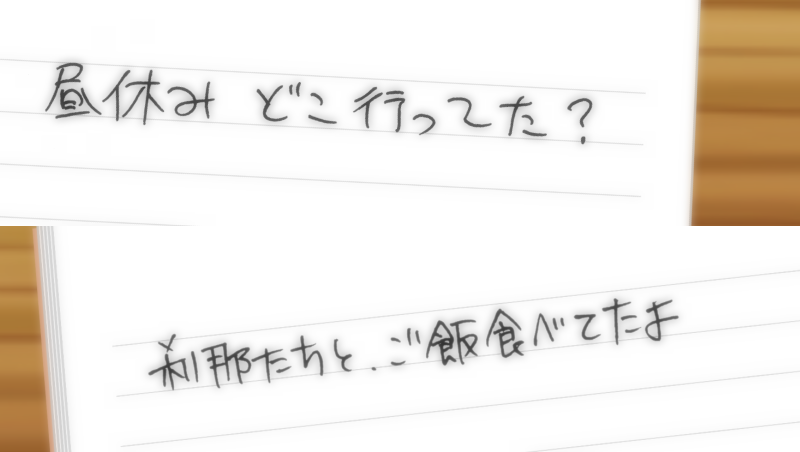 昼休み どこ行ってた?
刹那たちと、ご飯食べてたよ